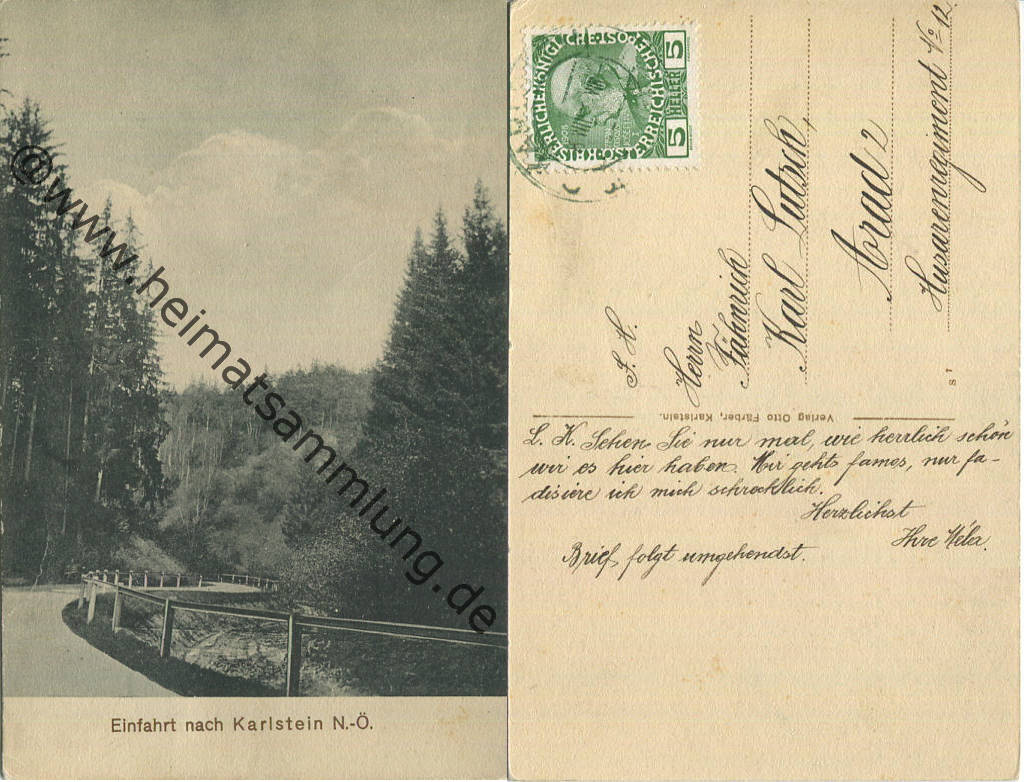 @www.heimatsammlung.de
Einfahrt nach Karlstein N.-Ö.
KAISERLICHE KÖNIGLICHE ÖSTERREICHISCHE POST
5
HELLER
5
F. H.
Herrn
Fähnrich
Karl Lutsch,
Arad 2
Husarenregiment No 12.
Verlag Otto Färber, Karlstein.
L. K. Sehen Sie nur mal, wie herrlich schön
wir es hier haben. Mir gehts fames, nur fa-
disiere ich mich schrecklich.
Herzlichst
Ihre
Brief folgt umgehendst.